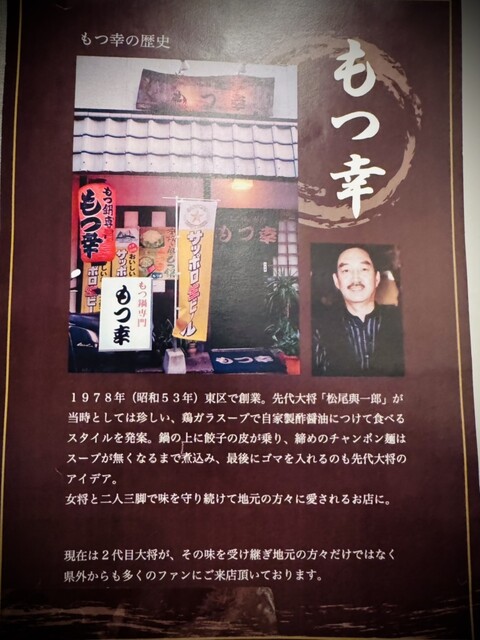 もつ幸の歴史
もつ幸
もつ幸
もつ鍋専
もつ幸
おいしい
サッポロ生ビール
もつ幸
もつ鍋専門
もつ幸
1978年（昭和53年）東区で創業。先代大将「松尾與一郎」が
当時としては珍しい、鶏ガラスープで自家製酢醤油につけて食べる
スタイルを発案。鍋の上に餃子の皮が乗り、締めのチャンポン麺は
スープが無くなるまで煮込み、最後にゴマを入れるのも先代大将の
アイデア。
女将と二人三脚で味を守り続けて地元の方々に愛されるお店に。
現在は２代目大将が、その味を受け継ぎ地元の方々だけではなく
県外からも多くのファンにご来店頂いております。